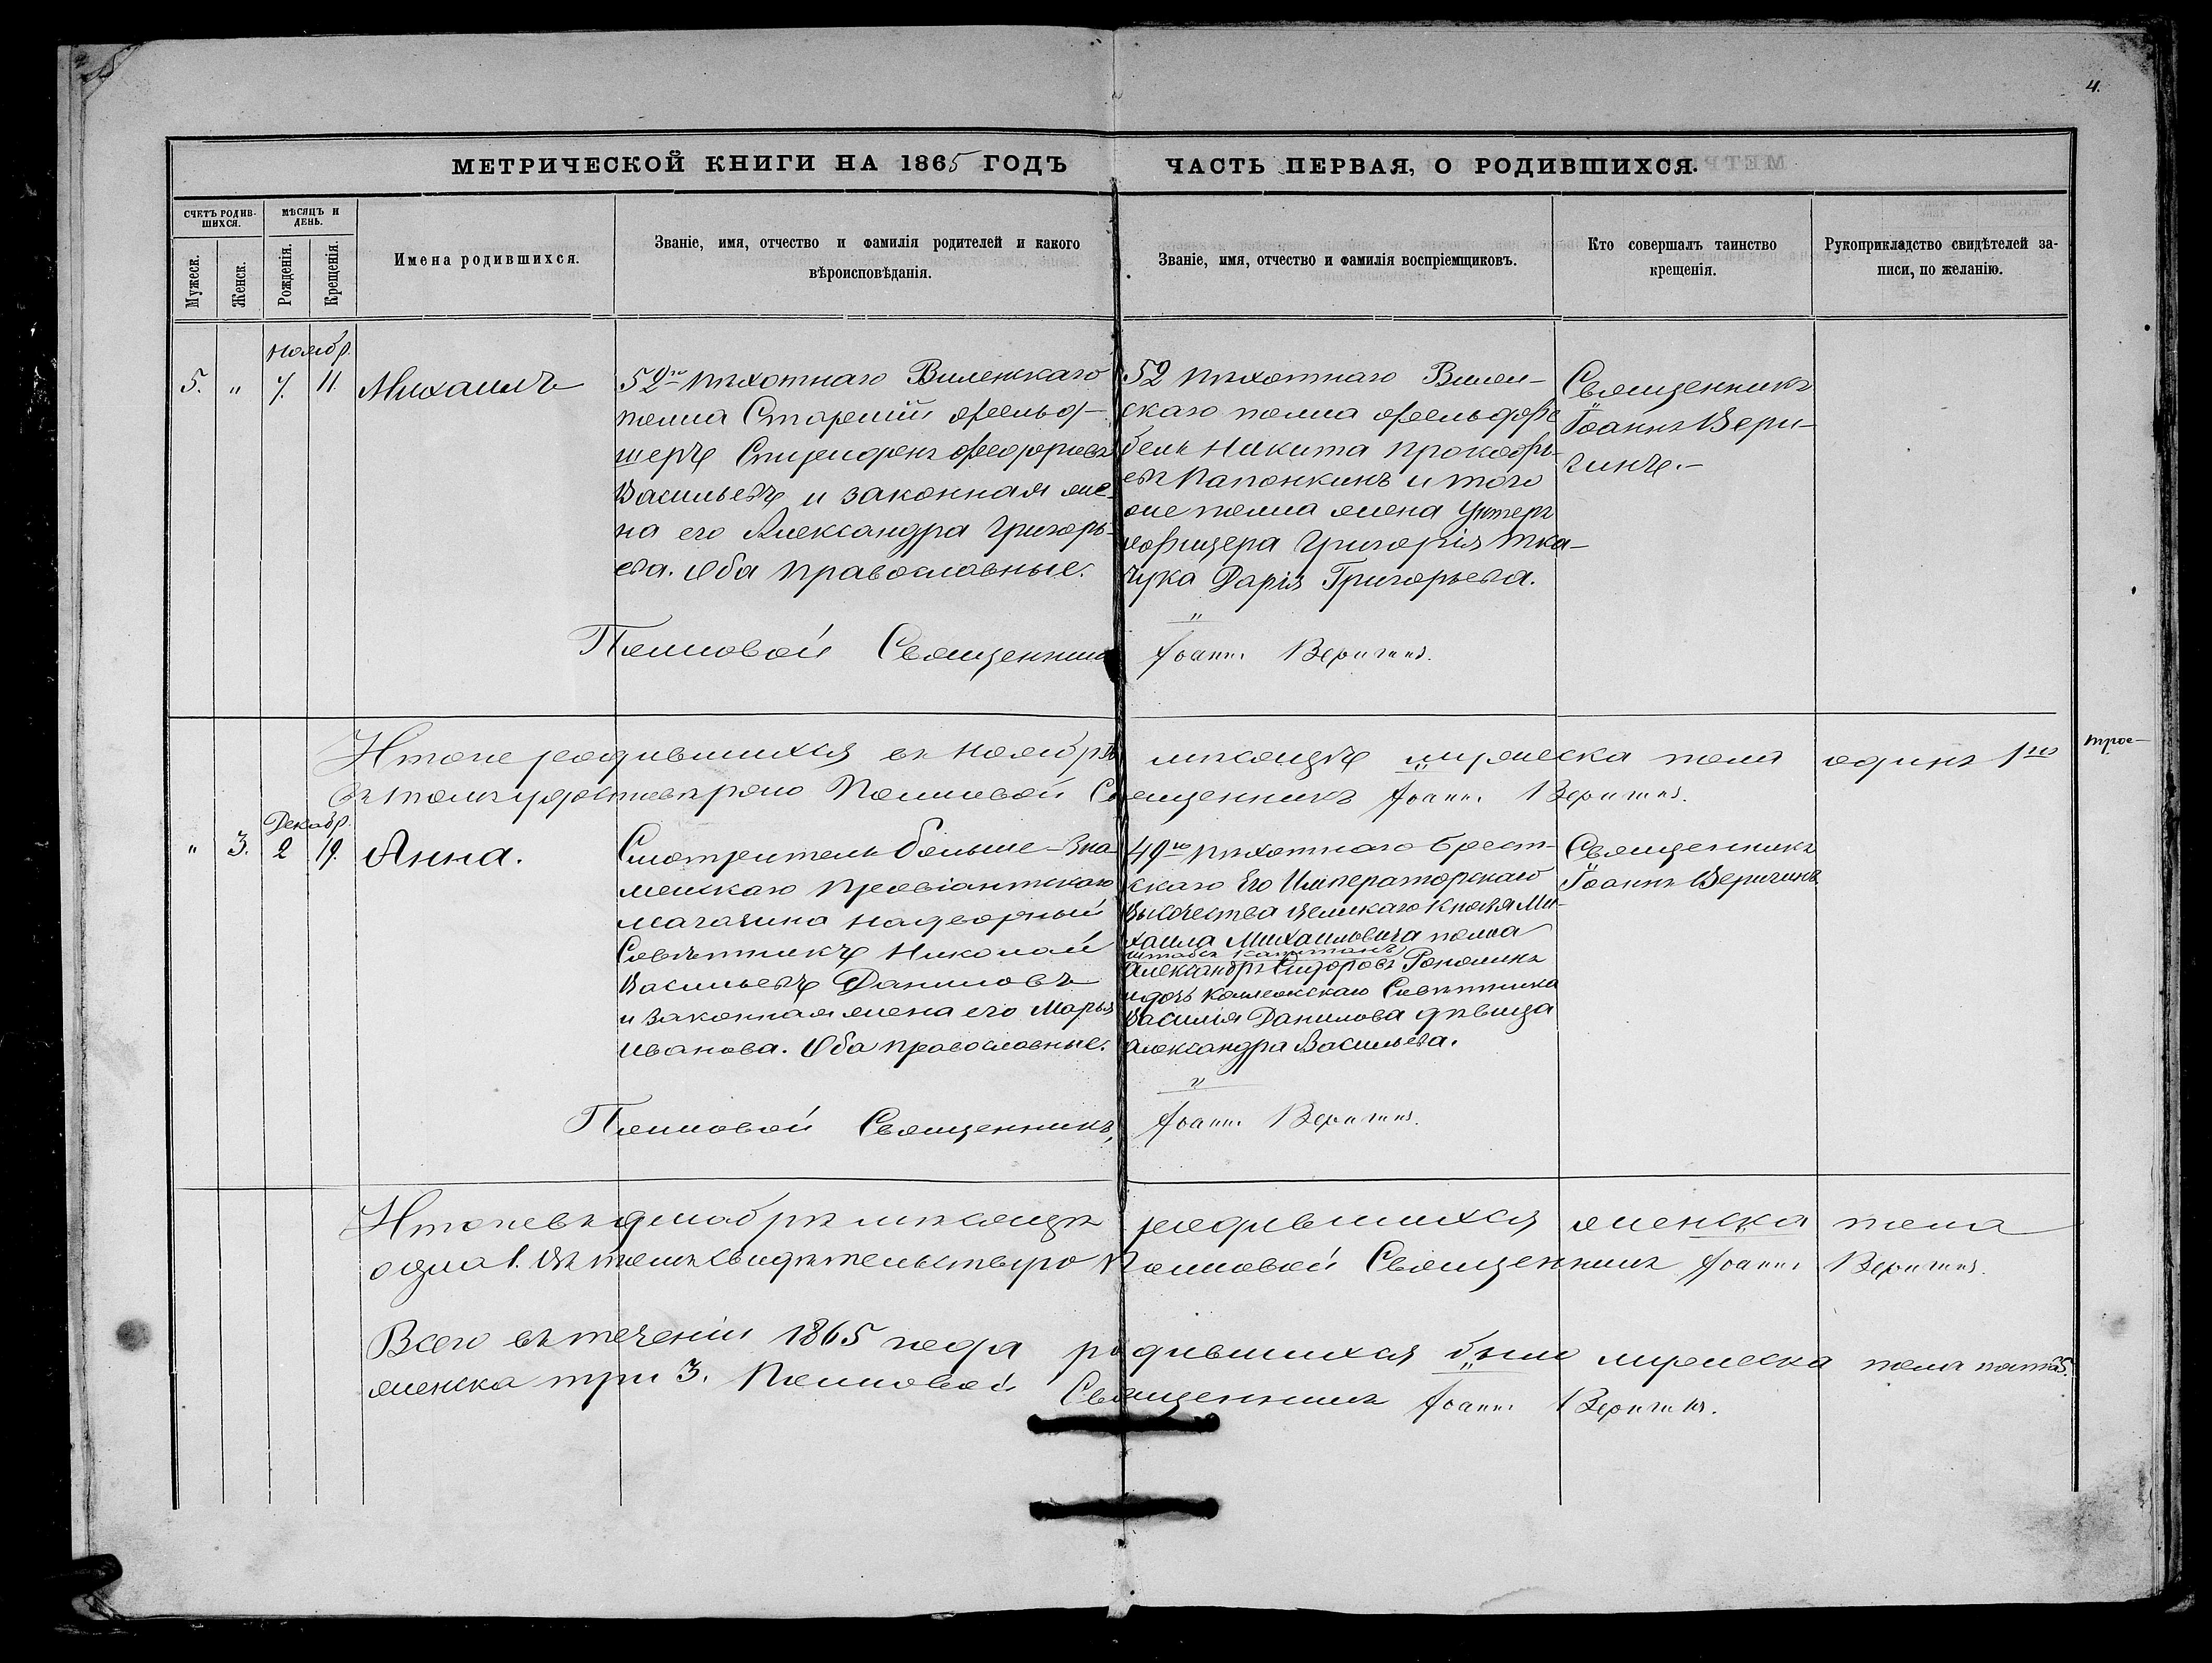 4.
МЕТРИЧЕСКОЙ КНИГИ НА 1865 ГОДЪ ЧАСТЬ ПЕРВАЯ, О РОДИВШИХСЯ.
СЧЕТЪ РОДИВ-
ШИХСЯ.
Мужеск.
Женск.
МѢСЯЦЪ И
ДЕНЬ.
Рожденія.
Крещенія.
Имена родившихся.
Званіе, имя, отчество и фамилія родителей и какого
вѣроисповѣданія.
Званіе, имя, отчество и фамилія воспріемщиковъ.
Кто совершалъ таинство
крещенія.
Рукоприкладство свидѣтелей за-
писи, по желанію.
Ноябр.
5. " 7. 11. Михаилъ
52го пѣхотнаго Виленскаго
полка Старшій фельд-
шеръ Феодоровъ
Васильевъ и законная же-
на его Александра Григорь-
ева. Оба православные.
52 пѣхотнаго Вилен-
скаго полка фельдфе
бель Никита Прокофь-
евъ Папонкинъ и того
же полка жена Унтеръ
офицера Григорія Тка-
чука Дарія Григорьева.
Священникъ
Іоаннъ Вери-
гинъ.-
Полковой Священникъ Іоаннъ Веригинъ.
Итого родившихся въ Ноябрѣ мѣсяцѣ мужеска пола одинъ 1го
Въ томъ Полковой Священникъ Іоаннъ Веригинъ.
Декабр.
" 3. 2 19. Анна.
Смотритель Больше-Зна-
менскаго провіантскаго
магазина надворный
Совѣтникъ Николай
Васильевъ Даниловъ
и законная жена его Марья
Иванова. Оба православные.
49го пѣхотнаго Брест-
скаго Его Императорскаго
Высочества Великаго Князя Ми-
хаила Михаиловича полка
штабсъ Капитанъ
Александръ Сидоровъ
и дочь Коллежскаго Совѣтника
Василія Данилова дѣвица
Александра Васильева.
Священникъ
Іоаннъ Веригинъ
Полковой Священникъ, Іоаннъ Веригинъ.
Итого въ декабрѣ мѣсяцѣ родившихся женска пола
одна 1. Въ томъ свидѣтельствую Полковой Священникъ Іоаннъ Веригинъ.
Всего въ теченіи 1865 года родившихся было мужеска пола пять 5.
женска три 3. Полковой Священникъ Іоаннъ Веригинъ.